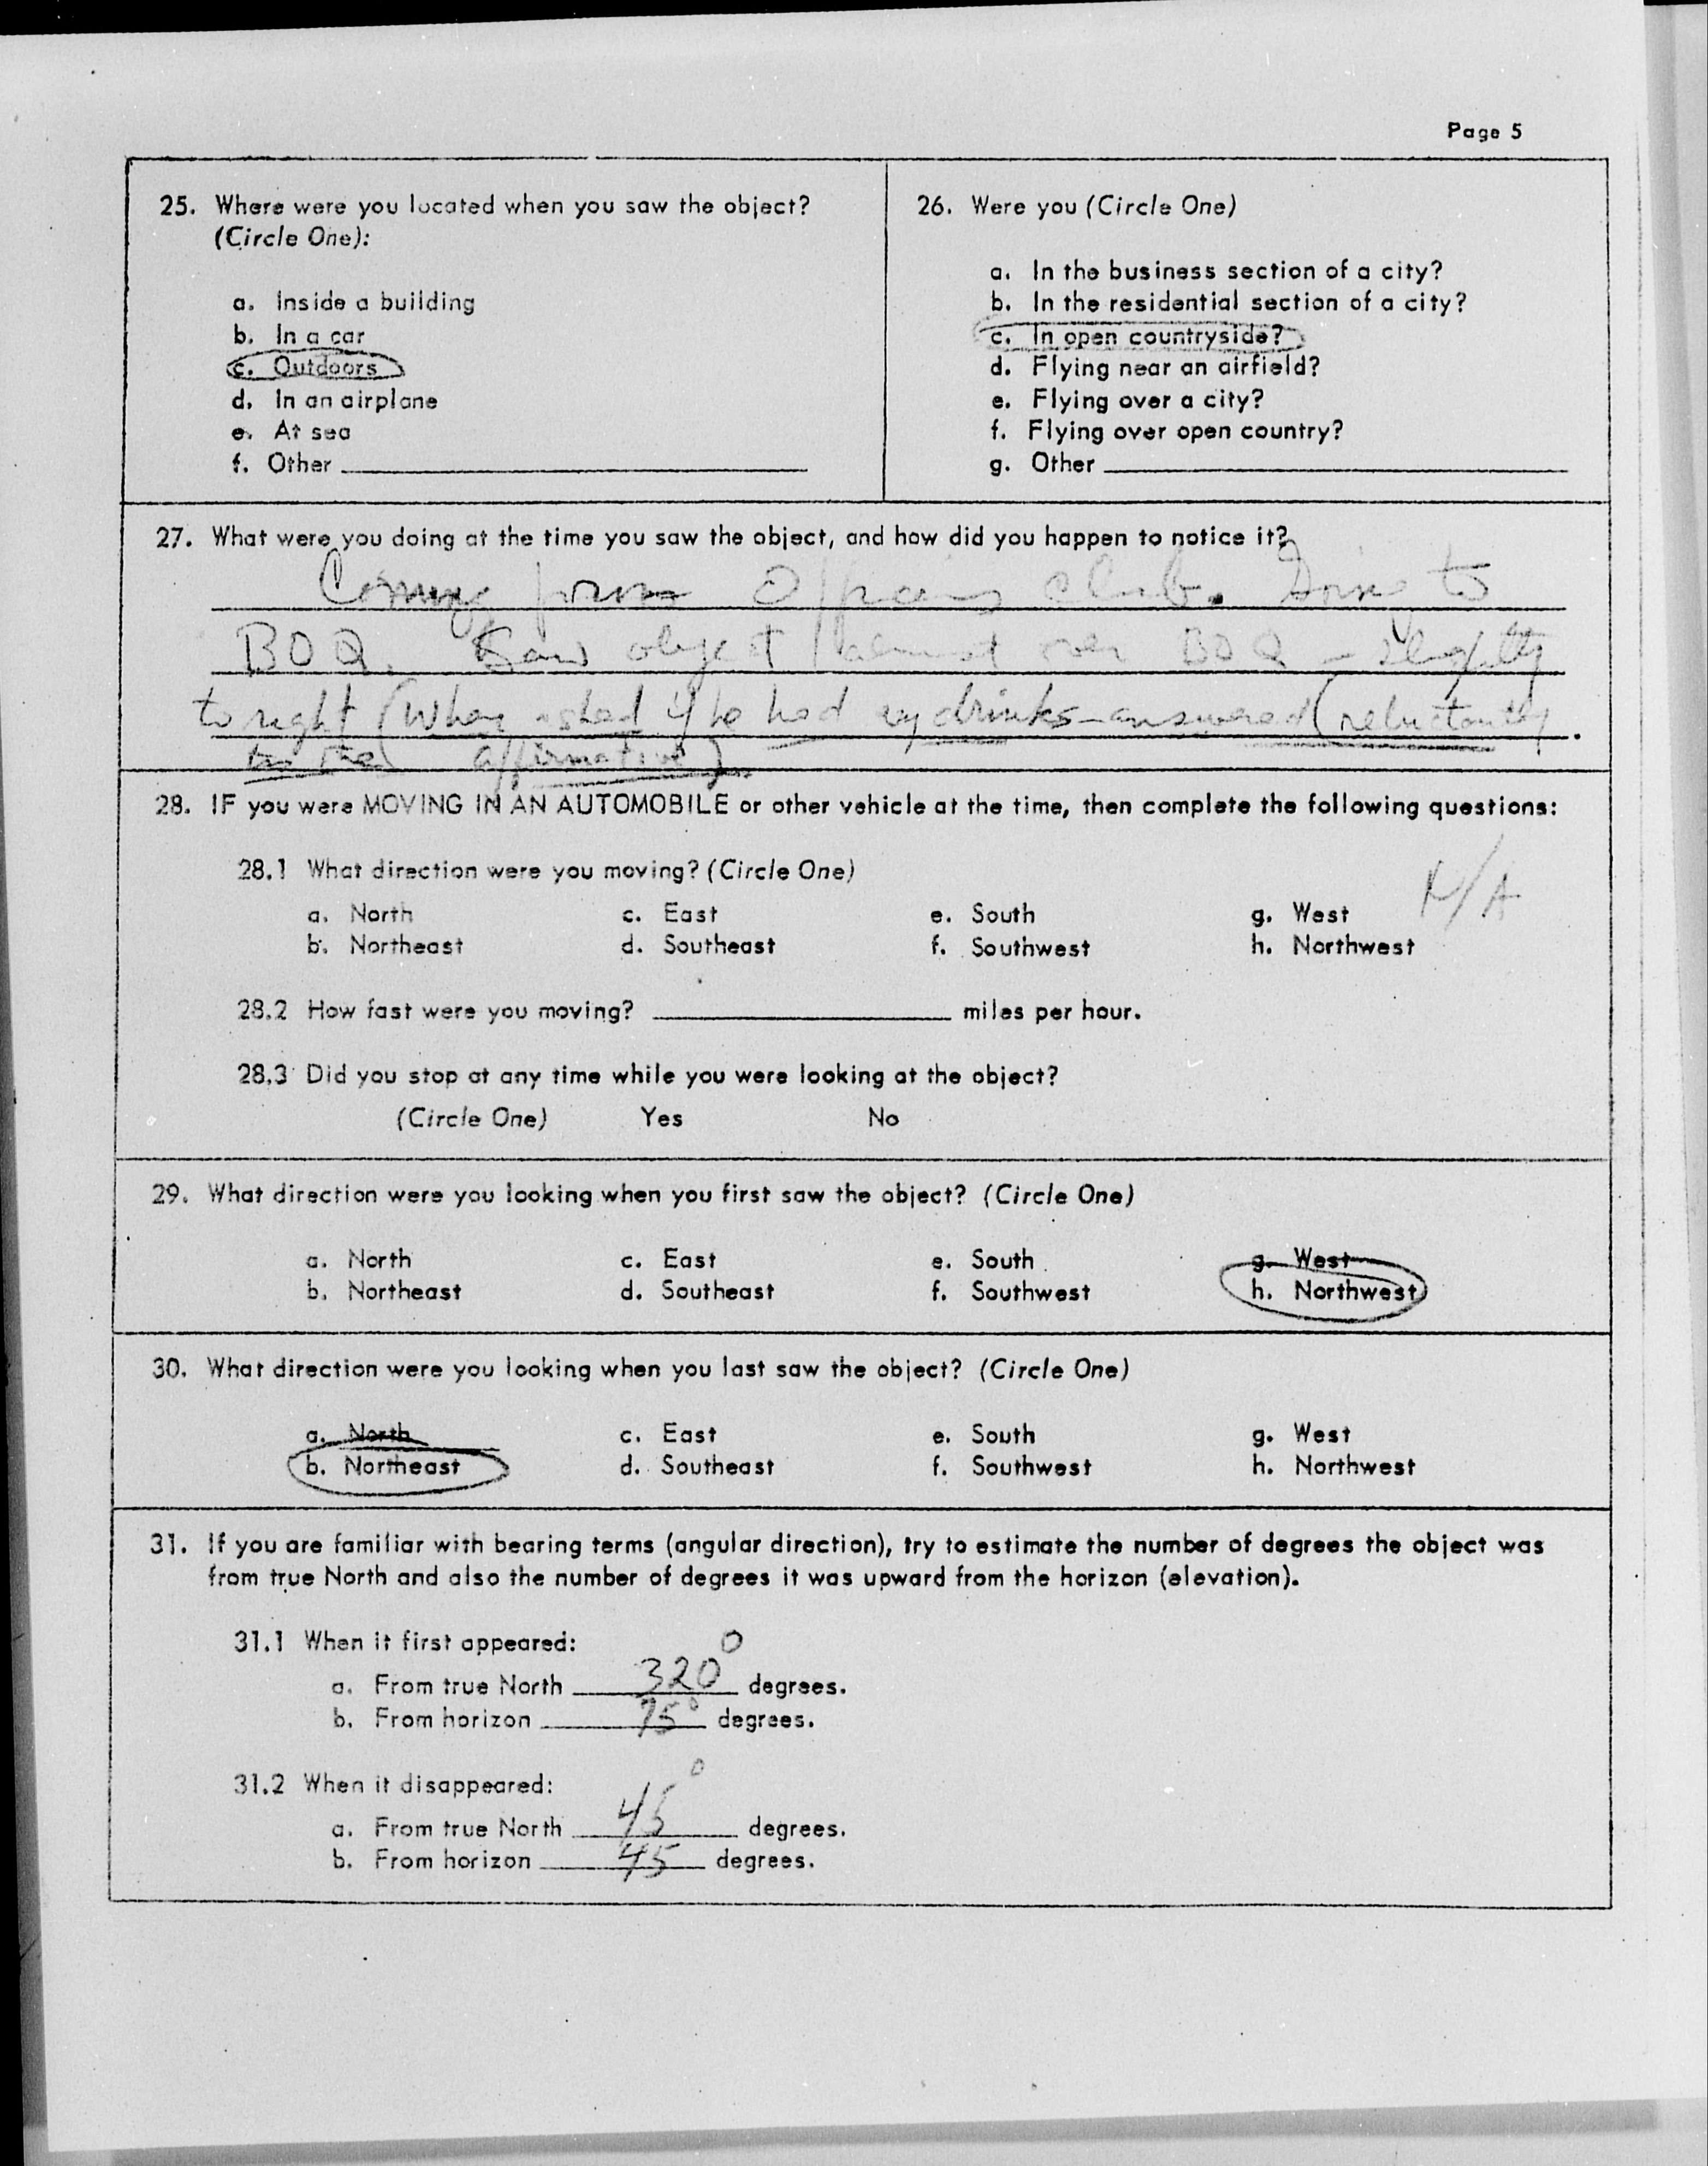 Page 5
25. Where were you located when you saw the object?
(Circle One):
a. Inside a building
b. In a car
c. Outdoors
d. In an airplane
e. At sea
f. Other
26. Were you (Circle One)
a. In the business section of a city?
b. In the residential section of a city?
c. In open countryside?
d. Flying near an airfield?
e. Flying over a city?
f. Flying over open country?
g. Other
27. What were you doing at the time you saw the object, and how did you happen to notice it?
Coming from Officers club. Going to
BOQ. Saw object almost over BOQ - slightly
to right (When asked if he had any drinks - answered (reluctantly
in the affirmative).
28. IF you were MOVING IN AN AUTOMOBILE or other vehicle at the time, then complete the following questions:
28.1 What direction were you moving? (Circle One)
N/A
a. North c. East e. South g. West
b. Northeast d. Southeast f. Southwest h. Northwest
28.2 How fast were you moving? miles per hour.
28.3 Did you stop at any time while you were looking at the object?
(Circle One) Yes No
29. What direction were you looking when you first saw the object? (Circle One)
a. North c. East e. South g. West
b. Northeast d. Southeast f. Southwest h. Northwest
30. What direction were you looking when you last saw the object? (Circle One)
a. North c. East e. South g. West
b. Northeast d. Southeast f. Southwest h. Northwest
31. If you are familiar with bearing terms (angular direction), try to estimate the number of degrees the object was
from true North and also the number of degrees it was upward from the horizon (elevation).
31.1 When it first appeared:
a. From true North 320° degrees.
b. From horizon 75° degrees.
31.2 When it disappeared:
a. From true North 45° degrees.
b. From horizon 45 degrees.